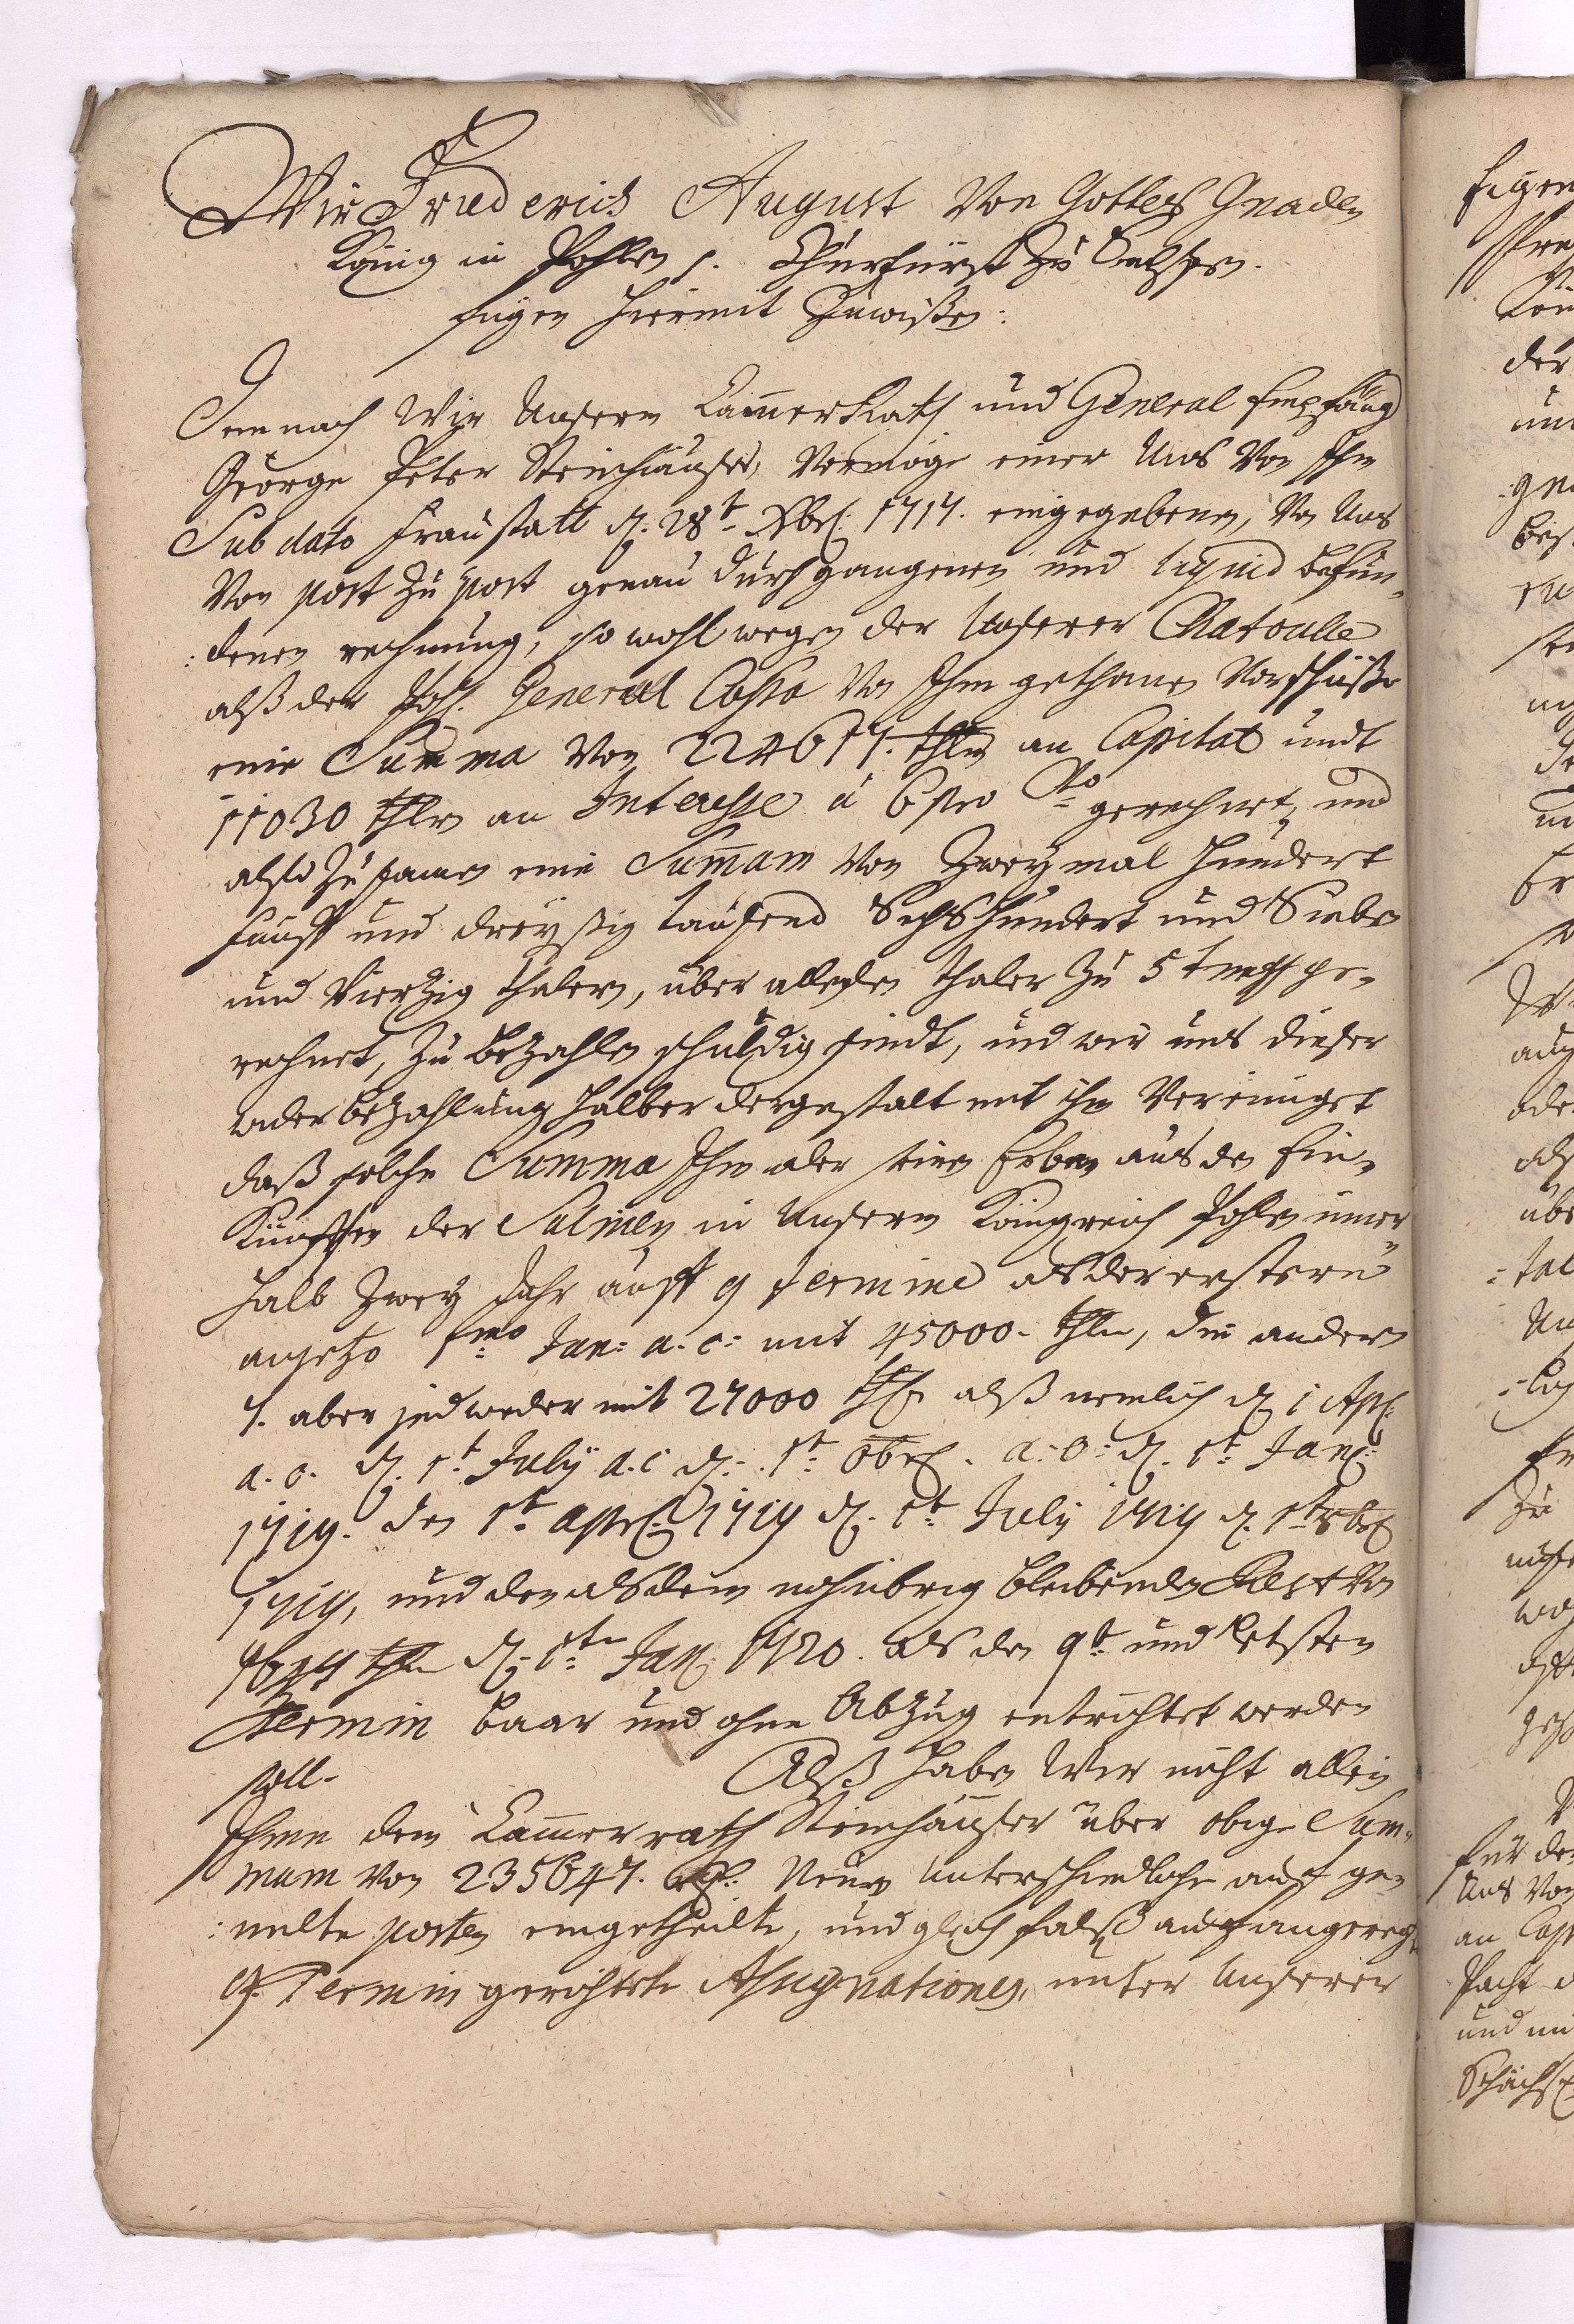 Wir Friederich August Von Gottes Gnaden
König in Pohlen p. Churfürst zu Sachßen.
fügen hiermit Zuwißen:
Demnach Wir Unserm CammerRath und General Empfäng
George Peter Steinhäußer, Vermöge einer Uns Von Ihm
Sub dato Fraustatt d. 28t. Xbr. 1717. eingegebenen, Von Uns
Von post zu post genau durchgangenen und liquid befun-
:denen rechnung, so wohl wegen der Unserer Chatoulle
alß der Pohl. General Cassa Von Ihm gethanen Vorschüße
eine Summa Von 224617. Thlr an Capital undt
11030 Thlr an Interesse à 6 pro Cto gerechnet, und
also zusamen eine Summam Von Zweymal Hundert
Fünff und dreyßig tausend Sechshundert und Sieben
und Vierzig thalern, über alle den thaler zu 5 tympf ge-
rechnet, zu bezahlen schuldig sindt, und wir uns dieser
wieder bezahlung halber dergestalt mit ihm Vereiniget
daß solche Summa Ihm oder seinen Erben aus den Ein-
Künfften der Salinen in Unserm Königreich Pohlen inner-
halb Zwey Jahr auff 9 Termine als der erstern
anjetzo 1mo Jan: a. c: mit 45000. Thlr, die andern
7. aber jedweder mit 27000 Thlr alß nemlich d. 1 Apr:
a. c. d. 1t. July a. c d. 1t. 8br. a. c: d. 1t. Jan:
1719. den 1t. apr: 1719 d. 1t. July 1719 d. 1t 8br
1719, und den alsdenn noch übrig bleibenden Rest Von
1647 Thlr d. 1tn Jan. 1720. als den 9t. und letzten
Termin baar und ohne Abzug entrichtet werden
soll. Alß haben Wir nicht allein
Ihme dem Cammerrath Steinhäußer über obige Sum-
mam Von 235647. Thlr. Neun Unterschiedliche auff ge-
:melte posten eingetheilte, und gleichfalß auff angeregte
9. Termin gerichtete Assignationes, unter Unserer